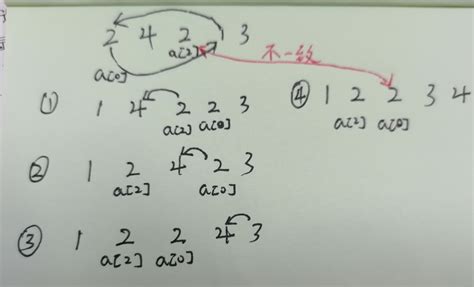 2 4 2 1 3
a[0] a[2] 不一致
① 1 4 2 2 3
a[2] a[0]
② 1 2 4 2 3
a[2] a[0]
③ 1 2 2 4 3
a[2] a[0]
④ 1 2 2 3 4
a[2] a[0]